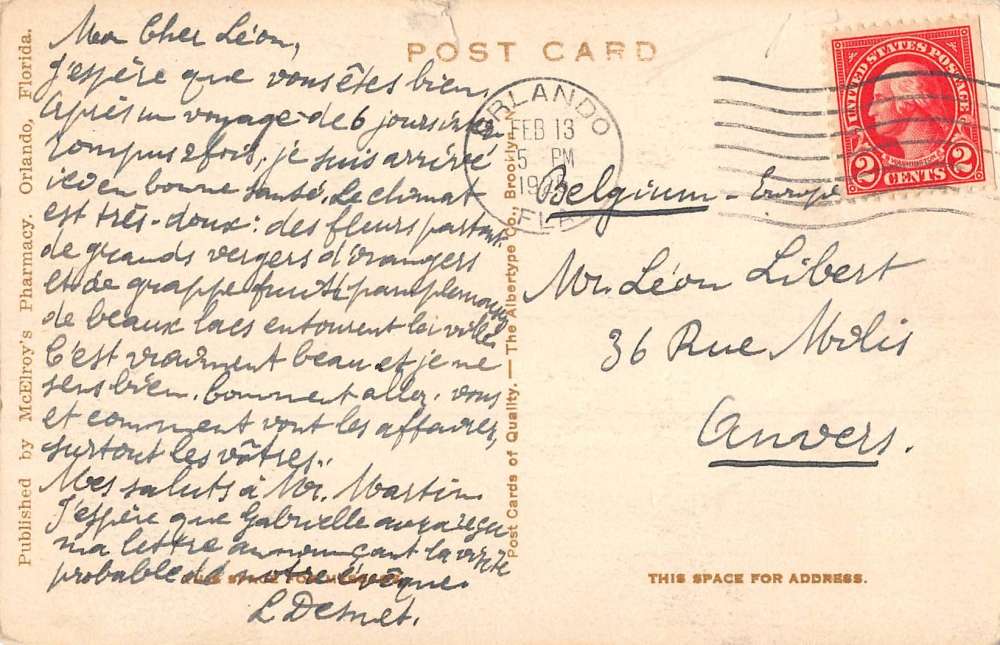 Published by McElroy's Pharmacy. Orlando, Florida.
Mon Cher Léon,
J'espère que vous êtes bien,
Après un voyage de 6 jours inter
rompus 2 fois, je suis arrivé
ici en bonne santé. Le climat
est très-doux: des fleurs partout
de grands vergers d'orangers
et de grappe fruit (pamplemousse)
de beaux lacs entourent la ville.
C'est vraiment beau et je me
sens bien. Comment allez-vous
et comment vont les affaires,
surtout les vôtres.
Mes saluts à Mr. Martin
J'espère que Gabrielle aura reçu
ma lettre annonçant la visite
probable de notre Évêque.
L Desmet.
THIS SPACE FOR
Post Cards of Quality. — The Albertype Co., Brooklyn, N.
POST CARD
ORLANDO
FEB 13
5 PM
FLA
UNITED STATES POSTAGE
WASHINGTON
2 CENTS 2
Belgium - Europe
Mr. Léon Libert
36 Rue Molis
Anvers.
THIS SPACE FOR ADDRESS.